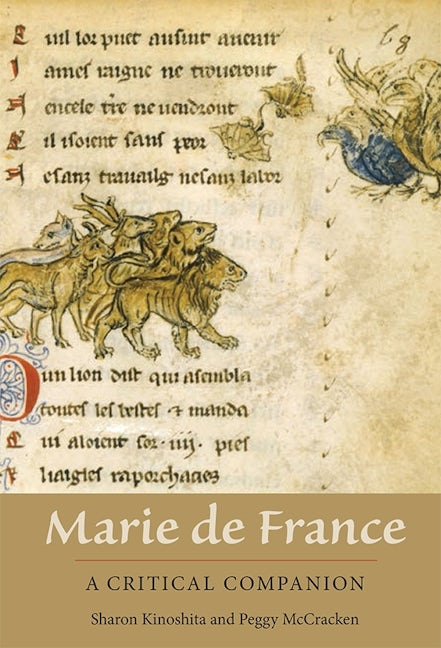 uil lor puet ausint auenir
I ames ne troueront
encele tre ne uendront
il isoient sans peor
esanz trauailg nesanz labor
68
D un lion dist qui asembla
toutes les bestes & manda
ui aloient sor .iiij. pies
Marie de France
A CRITICAL COMPANION
Sharon Kinoshita and Peggy McCracken